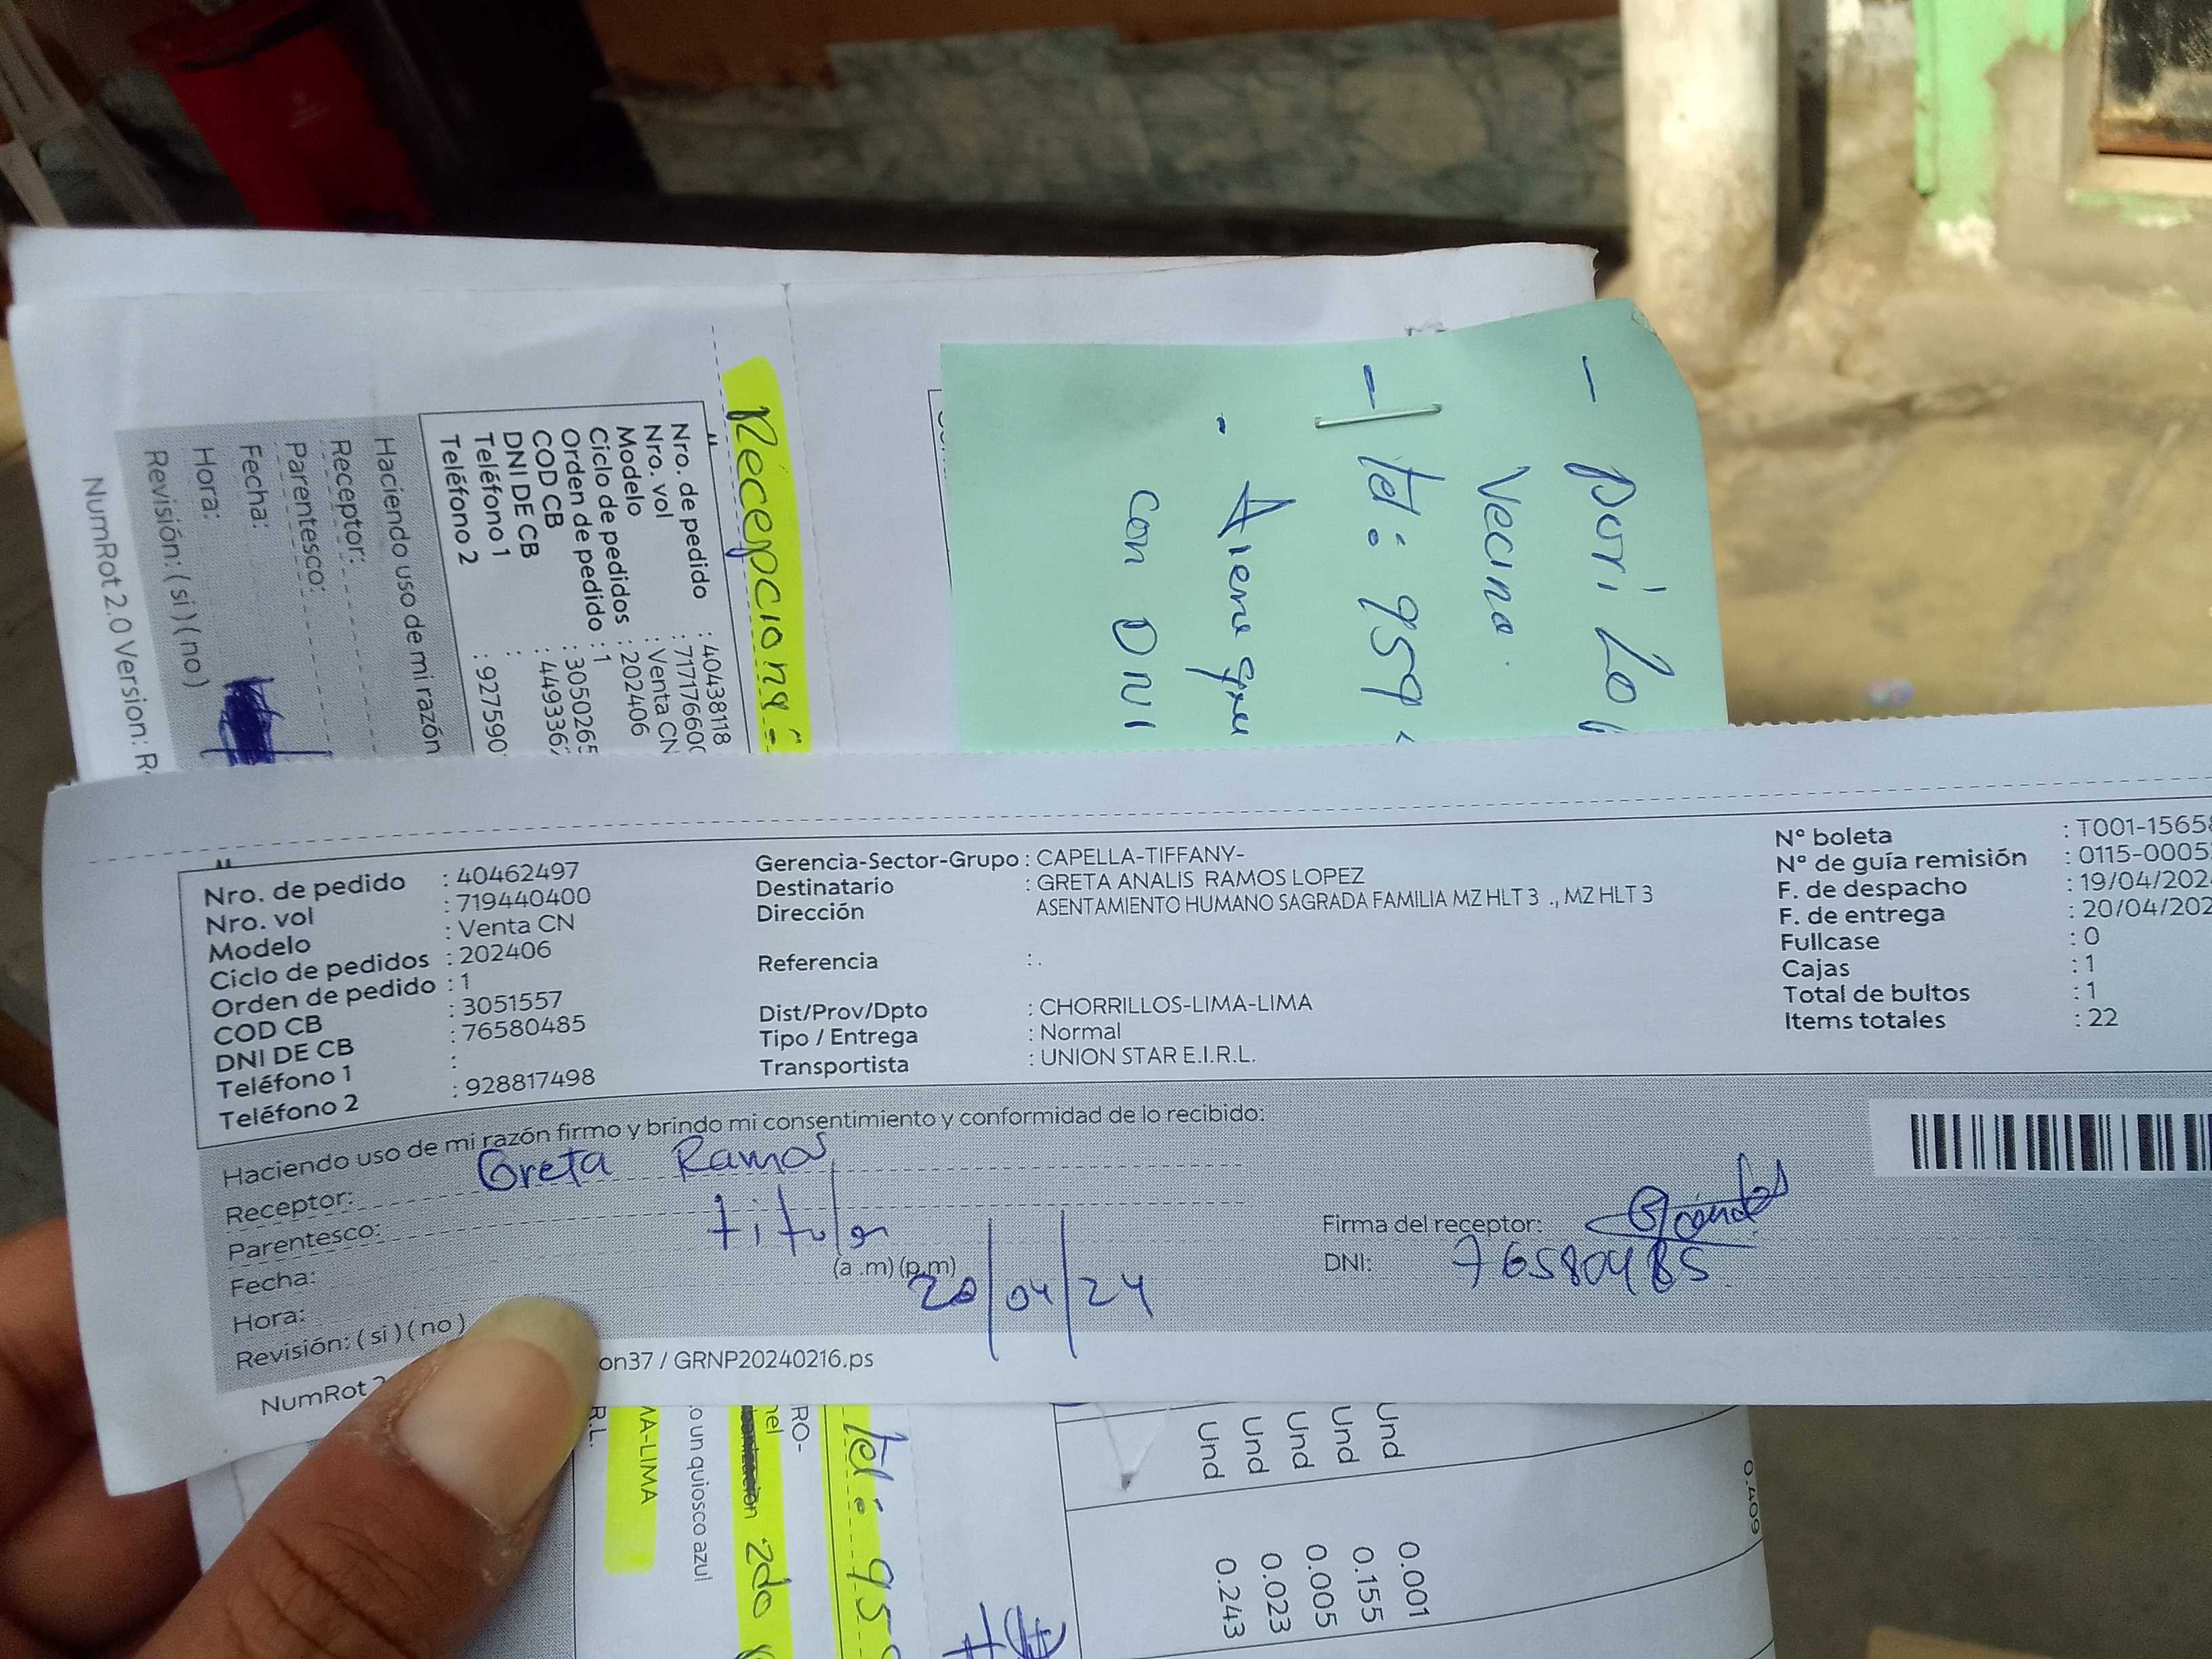 - Dori Lo
Vecina.
- tel: 959
- Tiene que
con DNI
Recepcioné
Nro. de pedido : 40438118
Nro. vol : 71717660
Modelo : Venta CN
Ciclo de pedidos : 202406
Orden de pedido : 1
COD CB : 3050265
DNI DE CB : 449336
Teléfono 1 :
Teléfono 2 : 927590
Haciendo uso de mi razón
Receptor:
Parentesco:
Fecha:
Hora:
Revisión: ( si ) ( no )
NumRot 2.0 Version: R
Nro. de pedido : 40462497
Nro. vol : 719440400
Modelo : Venta CN
Ciclo de pedidos : 202406
Orden de pedido : 1
COD CB : 3051557
DNI DE CB : 76580485
Teléfono 1 :
Teléfono 2 : 928817498
Gerencia-Sector-Grupo : CAPELLA-TIFFANY-
Destinatario : GRETA ANALIS RAMOS LOPEZ
Dirección ASENTAMIENTO HUMANO SAGRADA FAMILIA MZ HLT 3 ., MZ HLT 3
Referencia : .
Dist/Prov/Dpto : CHORRILLOS-LIMA-LIMA
Tipo / Entrega : Normal
Transportista : UNION STAR E.I.R.L.
N° boleta : T001-1565
N° de guía remisión : 0115-0005
F. de despacho : 19/04/202
F. de entrega : 20/04/202
Fullcase : 0
Cajas : 1
Total de bultos : 1
Items totales : 22
Haciendo uso de mi razón firmo y brindo mi consentimiento y conformidad de lo recibido:
Receptor: Greta Ramos
Parentesco: titular
Fecha: 20/04/24
Hora: (a .m) (p.m)
Revisión: ( si ) ( no )
Firma del receptor:
DNI: 76580485
NumRot 2 on37 / GRNP20240216.ps
tel: 95
RO-
nel 2do
o un quiosco azul
MA-LIMA
R.L.
Und 0.001
Und 0.155
Und 0.005
Und 0.023
Und 0.243
0.409